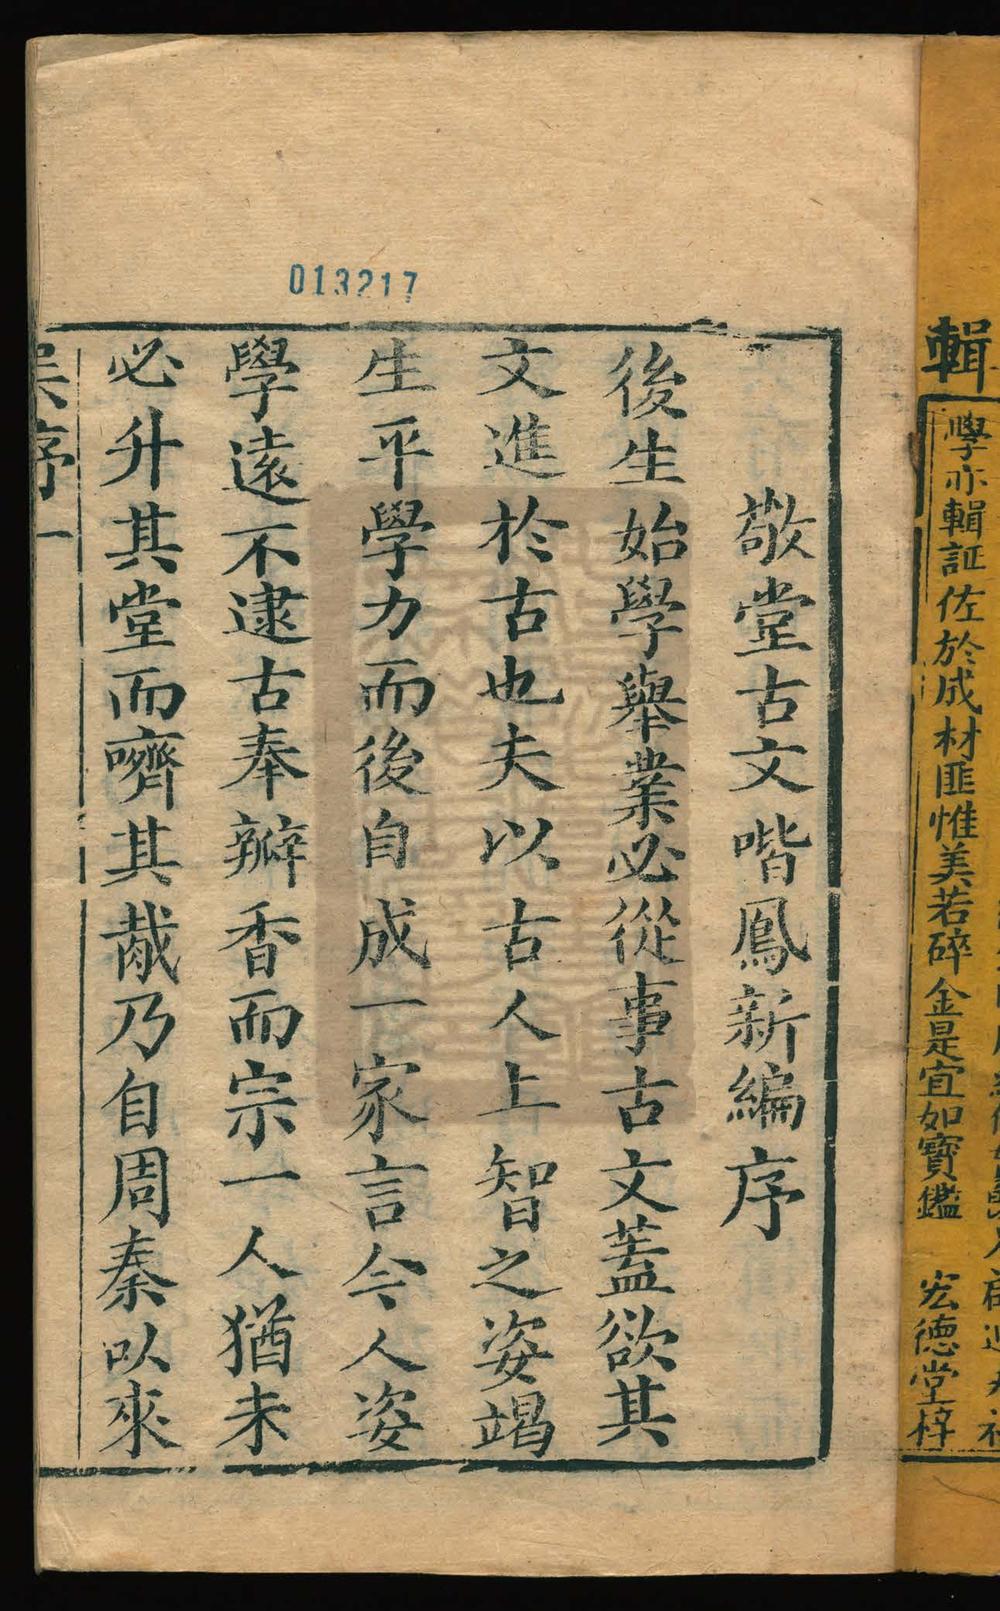 輯
學亦輯証佐於成材匪惟美若碎金是宜如寶鑑 宏德堂梓
013217
敬堂古文喈鳳新編序
後生始學舉業必從事古文蓋欲其
文進於古也夫以古人上智之姿竭
生平學力而後自成一家言今人姿
學遠不逮古奉瓣香而宗一人猶未
必升其堂而嚌其胾乃自周秦以來
序一